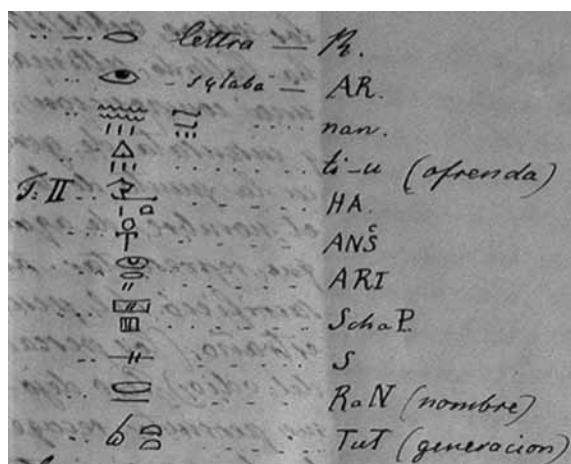 lettra — R.
sylaba — AR.
nan.
ti-u (ofrenda)
F. II HA.
ANŠ
ARI
SchaP.
S
RaN (nombre)
TuT (generacion)